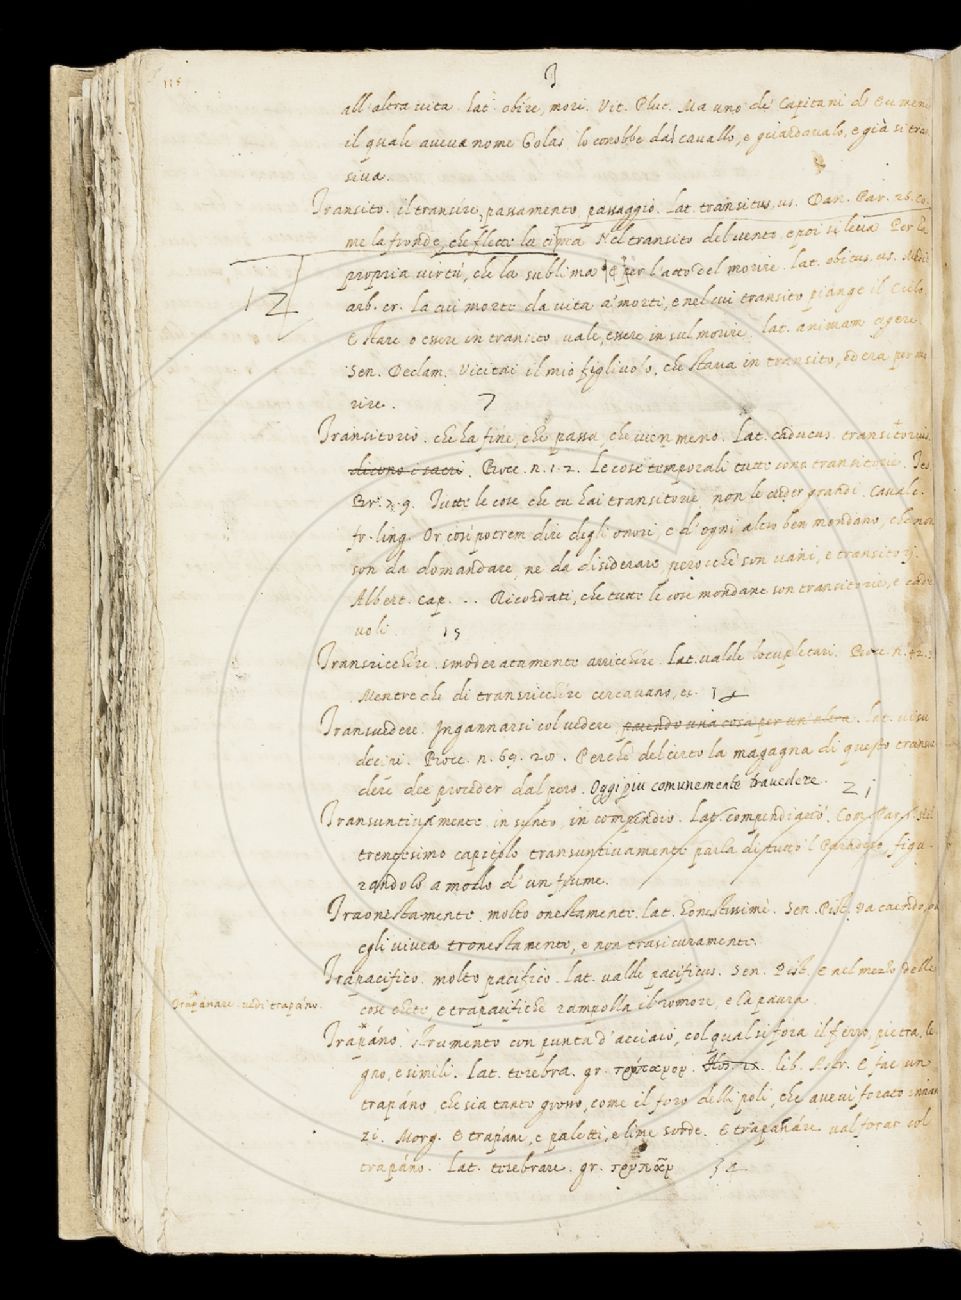 T
all'altra vita. Lat. obire, mori. Vit. Plut. Ma uno de' Capitani di Eumene
il quale aveva nome lo conobbe dal cavallo, e guardavalo, e già si tran
siva.
Transito. il transíre, passamento, passaggio. Lat. transitus, us. Dan. Par. 26. Co
me la fronde, che flette la cima Nel transito del vento, e poi si leva Per la
propria virtù, che la sublima E per l'atto del morire. Lat. obitus, us. Medit.
12
arb. cr. La cui morte da vita a' morti, e nel cui transito piange il Cielo,
E stare o essere in transito vale, essere in sul morire. Lat. animam agere
Sen. Declam. Vicitai il mio figliuolo, che stava in transito, ed era per mo
rire. 7
Transitorio. che ha fine, che passa, che vien meno. Lat. caducus transitorius
dicono i sacri. Bocc. n. 1. 2. Le cose temporali tutte sono transitorie. Tes.
Br. 7. 9. Tutte le cose che tu hai transitorie, non le creder grandi. Cavalc.
fr. ling. Or così potrem dire degli onori, e d'ogni altro ben mondano, che non
son da domandare, ne da disiderare, perocchè son vani, e transitorj.
Albert. Cap. . . Ricordati, che tutte le cose mondane son transitorie, e cade
voli. 15
Transricchire. smoderatamente arricchire. Lat. valde locupletari. Bocc. n. 42. 3.
Mentre che di transricchire cercavano, ec. 14
Transvedere. Ingannarsi col vedere, parendo una cosa per un'altra. Lat. visu
decipi. Bocc. n. 69. 28. Perchè del certo la magagna di questo transve
dere dee proceder dal pero. Oggi piu comunemente travedere. 21
Transuntivamente. in sunto, in compendio. Lat. compendiario. Com. Par.
trentesimo capitolo transuntivamente parla di tutto 'l Paradiso, figu-
randolo a modo d'un fiume.
Traonestamente. molto onestamente. Lat. honestissime. Sen. Pist. Va caendo, se
egli vivea tronestamente, e non trasicuramente.
Trapacifico. molto pacifico. Lat. valde pacificus. Sen. Pist. E nel mezzo delle
Trapanare. vedi trapáno.
cose chete, e trapacifiche rampolla il romore, e la paura.
Trapáno. strumento con punta d'acciaio, col qual si fora il ferro, pietra, le
gno, e simili. Lat. terebra. gr. τρύπανον. lib. Astr. E fae un
trapáno, che sia tanto grosso, come il foro delli poli, che avevi forato innan
zi. Morg. E trapani, e paletti, e lime sorde. E trapanáre val forar col
trapáno. Lat. terebrare. gr. τρυπᾶν 34